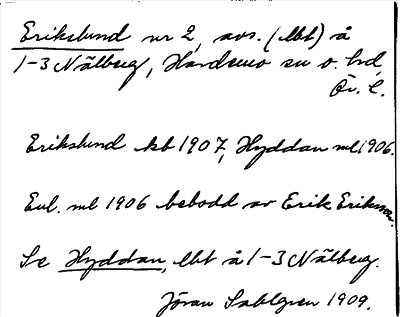 Erikslund nr 2, avs. (lbt) å
1-3 Nälberg, Hardemo sn o. hd,
Ör. l.
Erikslund kb 1907, Hyddan ml 1906.
Enl. ml 1906 bebodd av Erik Eriksson.
Se Hyddan, lbt å 1-3 Nälberg.
Jöran Sahlgren 1909.